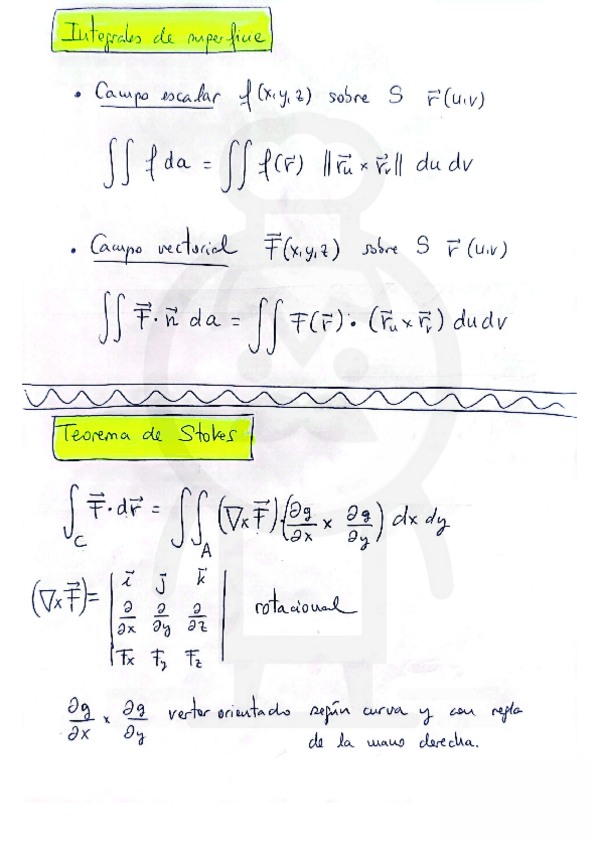 Integrales de superficie
• Campo escalar f(x,y,z) sobre S r⃗(u,v)
∬ f da = ∬ f(r⃗) ||r⃗u × r⃗v|| du dv
• Campo vectorial F⃗(x,y,z) sobre S r⃗(u,v)
∬ F⃗ · n⃗ da = ∬ F(r⃗) · (r⃗u × r⃗v) du dv
Teorema de Stokes
∫_C F⃗ · dr⃗ = ∬_A (∇×F⃗) · (∂g/∂x × ∂g/∂y) dx dy
(∇×F⃗) = | i⃗ j⃗ k⃗ |
| ∂/∂x ∂/∂y ∂/∂z | rotacional
| Fx Fy Fz |
∂g/∂x × ∂g/∂y vector orientado según curva y con regla
de la mano derecha.